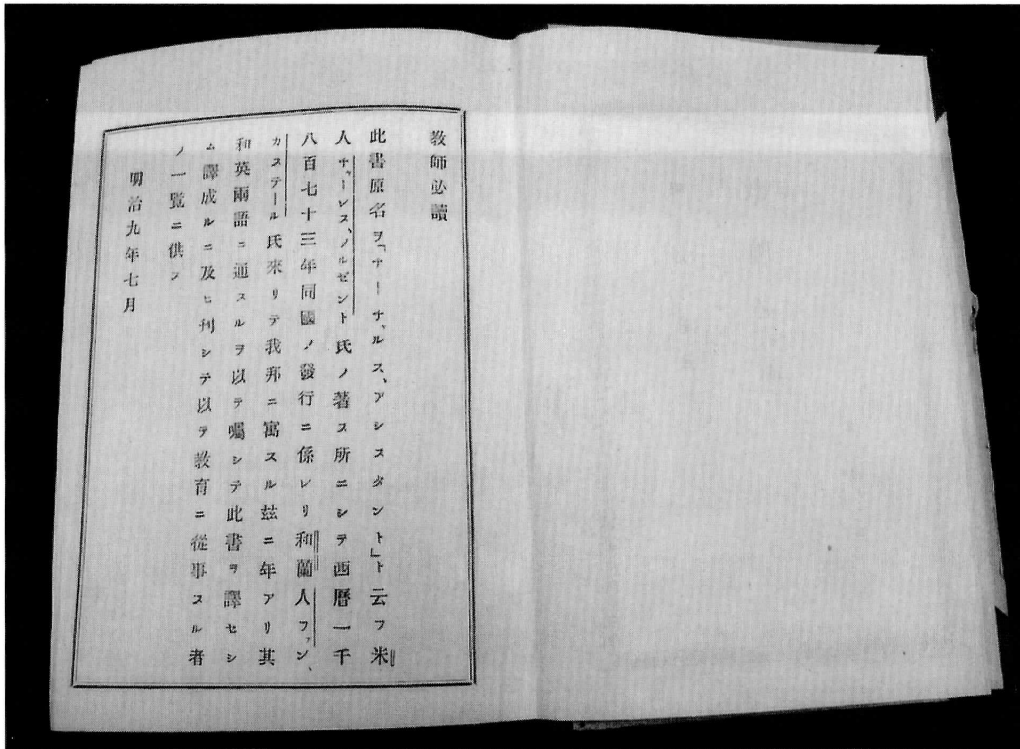 教師必讀
此書原名ヲ「チーチ、ルス、アシスタント」ト云フ米
人チャーレス、ノルゼント氏ノ著ス所ニシテ西曆一千
八百七十三年同國ノ發行ニ係レリ和蘭人ファン、
カステール氏來リテ我邦ニ寓スル玆ニ年アリ其
和英兩語ニ通スルヲ以テ囑シテ此書ヲ譯セシ
ム譯成ルニ及ヒ刊シテ以テ敎育ニ從事スル者
ノ一覽ニ供ス
明治九年七月